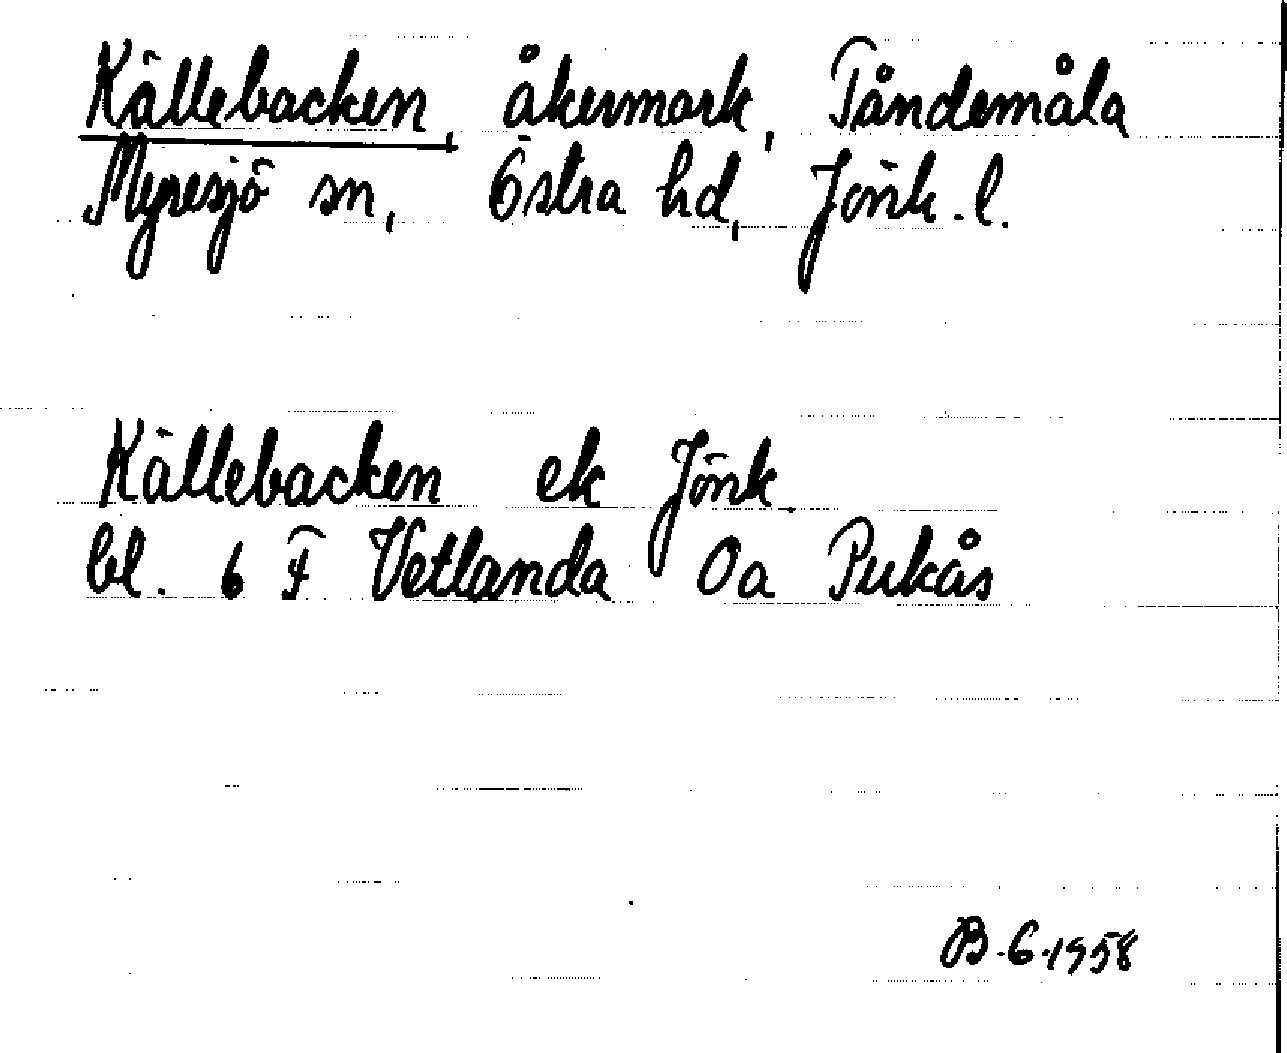 Källebacken, åkermark, Tåndemåla
Myresjö sn, Östra hd, Jönk. l.
Källebacken ek Jönk.
bl. 6 F Vetlanda Oa Pukås
B-6-1958